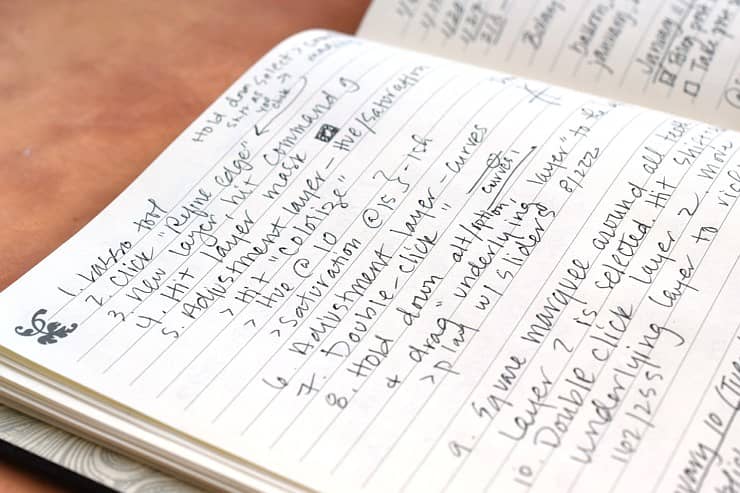 Hold down Select >
shift as you >
click
1. Lasso tool
2. Click "Refine edge"
3. New layer, hit Command J
4. Hit layer mask
5. Adjustment layer - Hue/Saturation
> Hit "Colorize"
> Hue @ 10
> Saturation @ 15 } -ish
6. Adjustment layer - curves
7. Double-click "curves"
8. Hold down alt/option,
& drag "underlying layer" to the
> play w/ sliders 8/222
9. Square marquee around all
Layer 2 is selected. Hit shift
10. Double click layer 2. Move
underlying layer to
102/255
January
Bring
Take